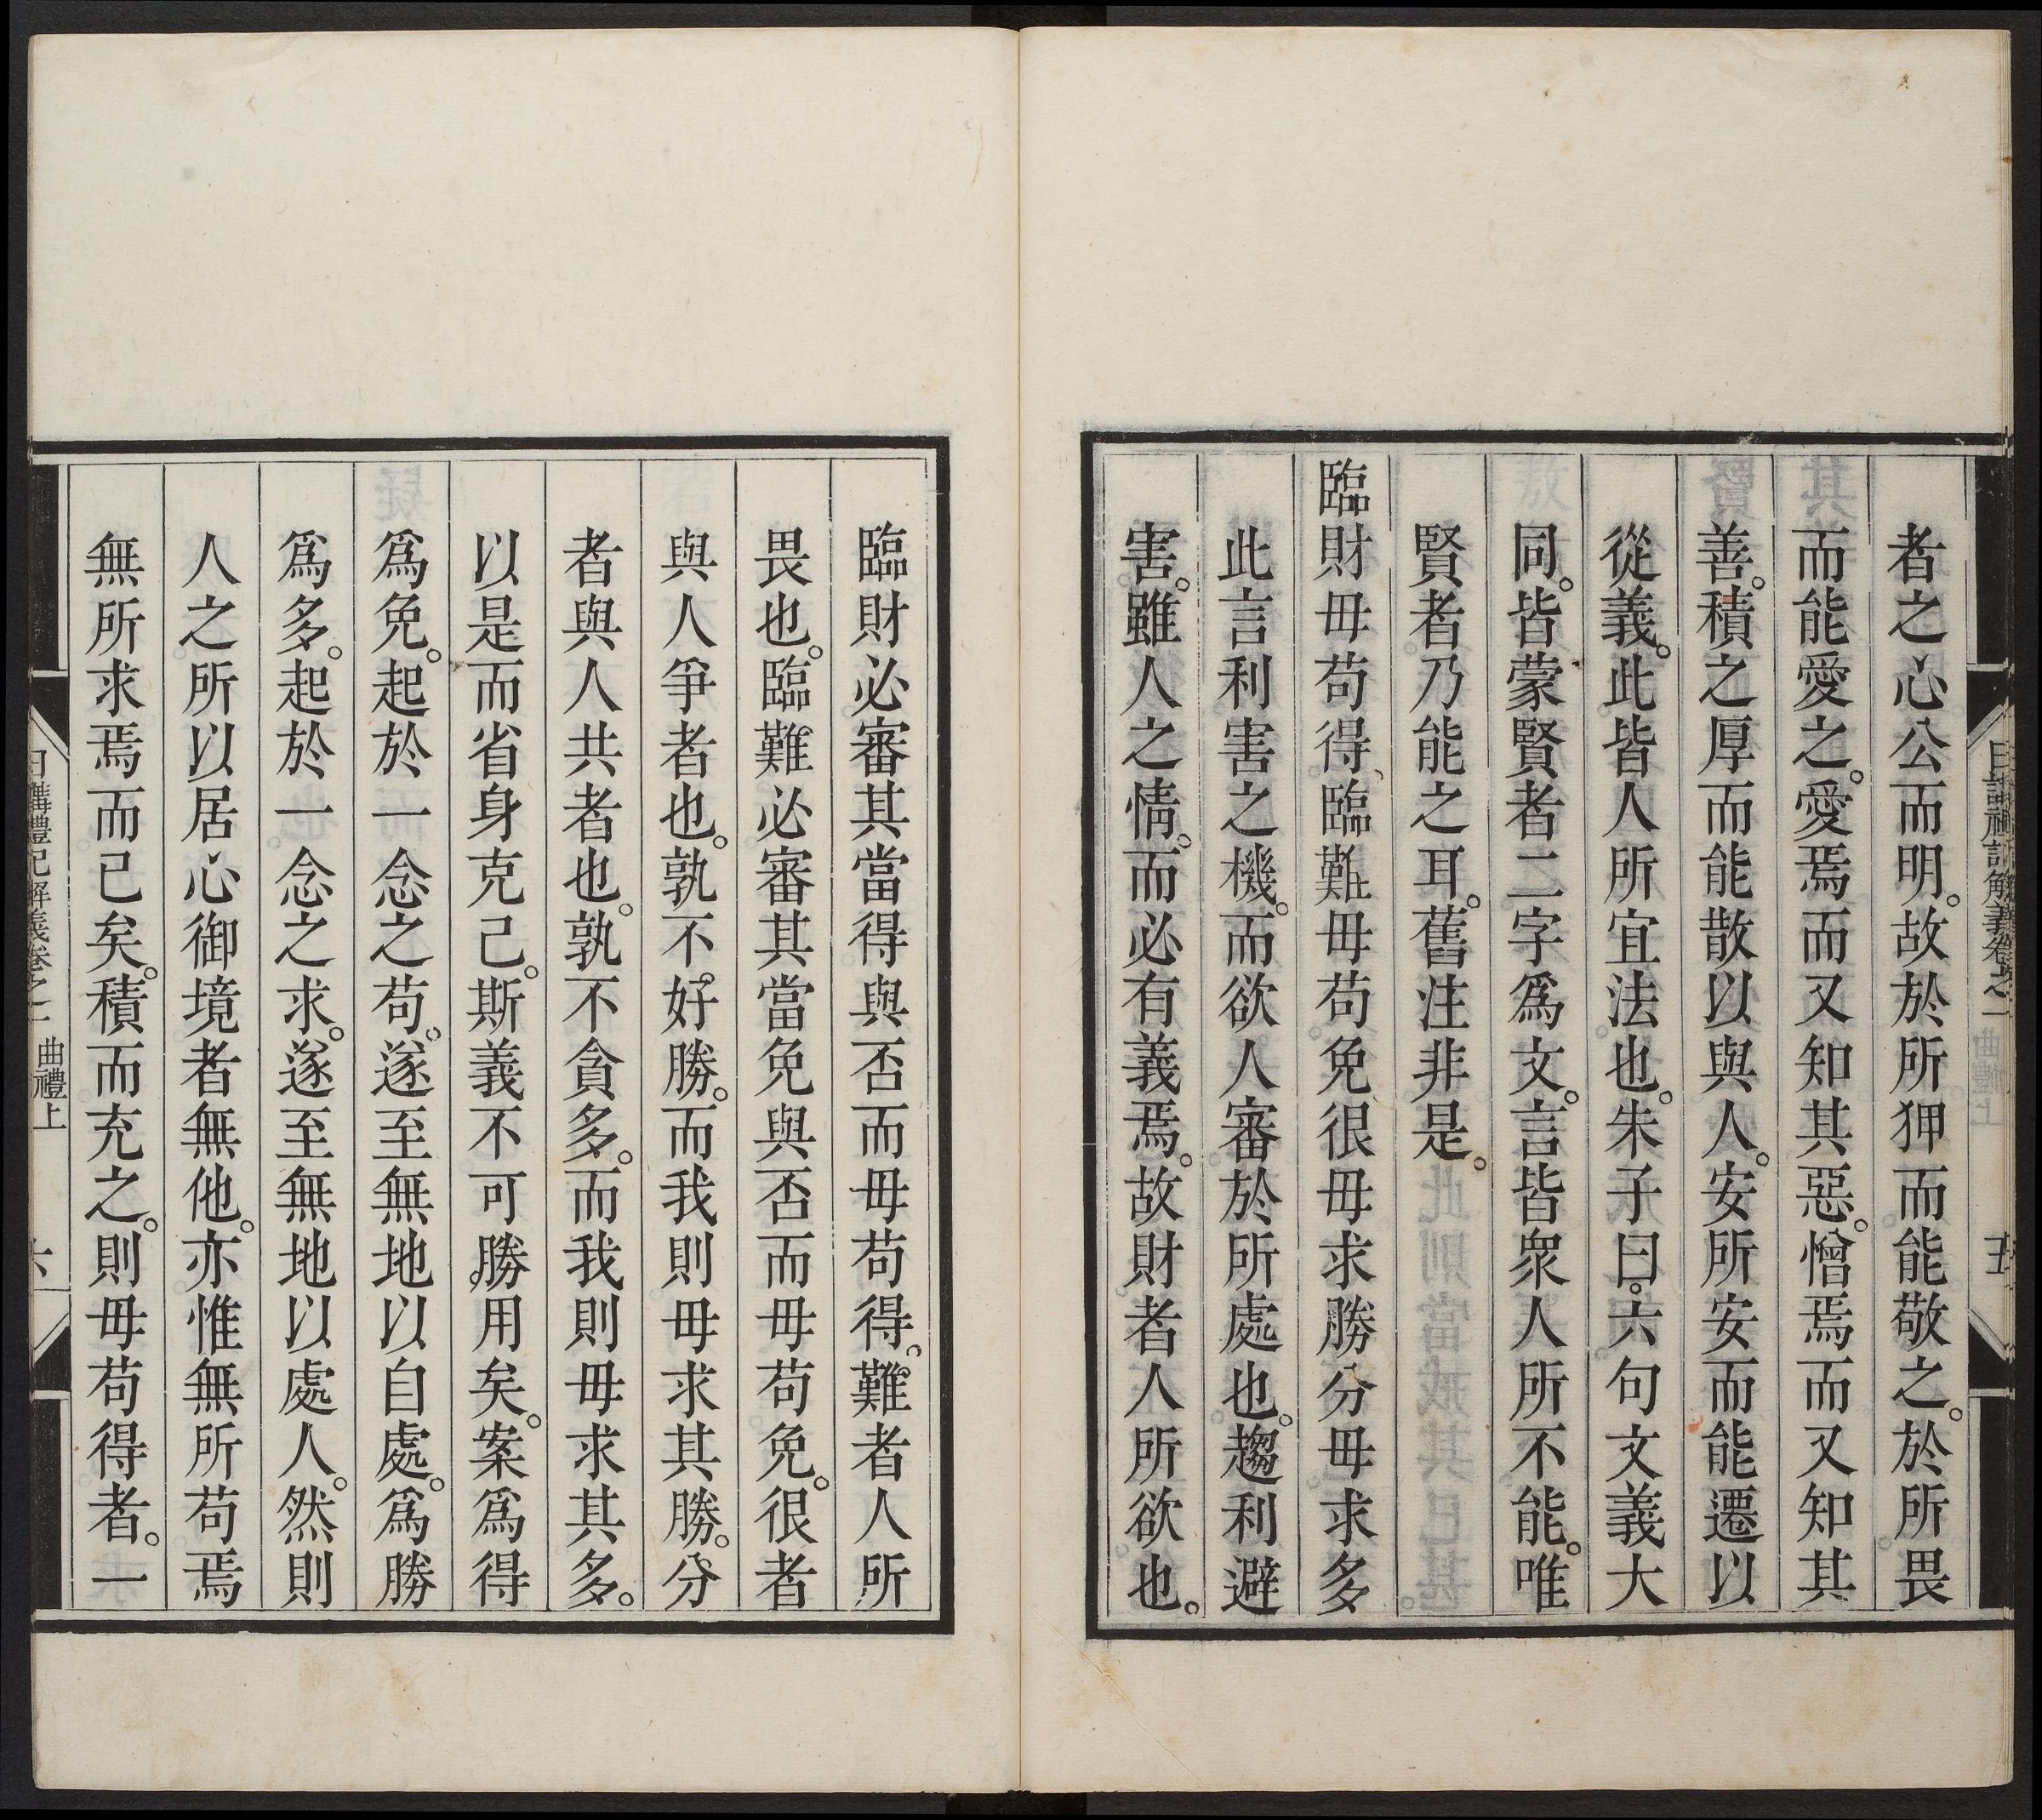 者之心公而明。故於所狎而能敬之。於所畏
而能愛之。愛焉而又知其惡。憎焉而又知其
善。積之厚而能散以與人。安所安而能遷以
從義。此皆人所宜法也。朱子曰。六句文義大
同。皆蒙賢者二字為文。言皆衆人所不能。唯
賢者乃能之耳。舊注非是。
臨財毋苟得、臨難毋苟免很毋求勝分毋求多
此言利害之機。而欲人審於所處也。趨利避
害。雖人之情。而必有義焉。故財者人所欲也。
臨財必審其當得與否而毋苟得。難者人所
畏也。臨難必審其當免與否而毋苟免。很者
與人爭者也。孰不好勝。而我則毋求其勝。分
者與人共者也。孰不貪多。而我則毋求其多。
以是而省身克己。斯義不可勝用矣。案爲得
爲免。起於一念之苟。遂至無地以自處。爲勝
爲多。起於一念之求。遂至無地以處人。然則
人之所以居心御境者無他。亦惟無所苟焉
無所求焉而已矣。積而充之。則毋苟得者。一
日講禮記解義卷之一 曲禮上 六